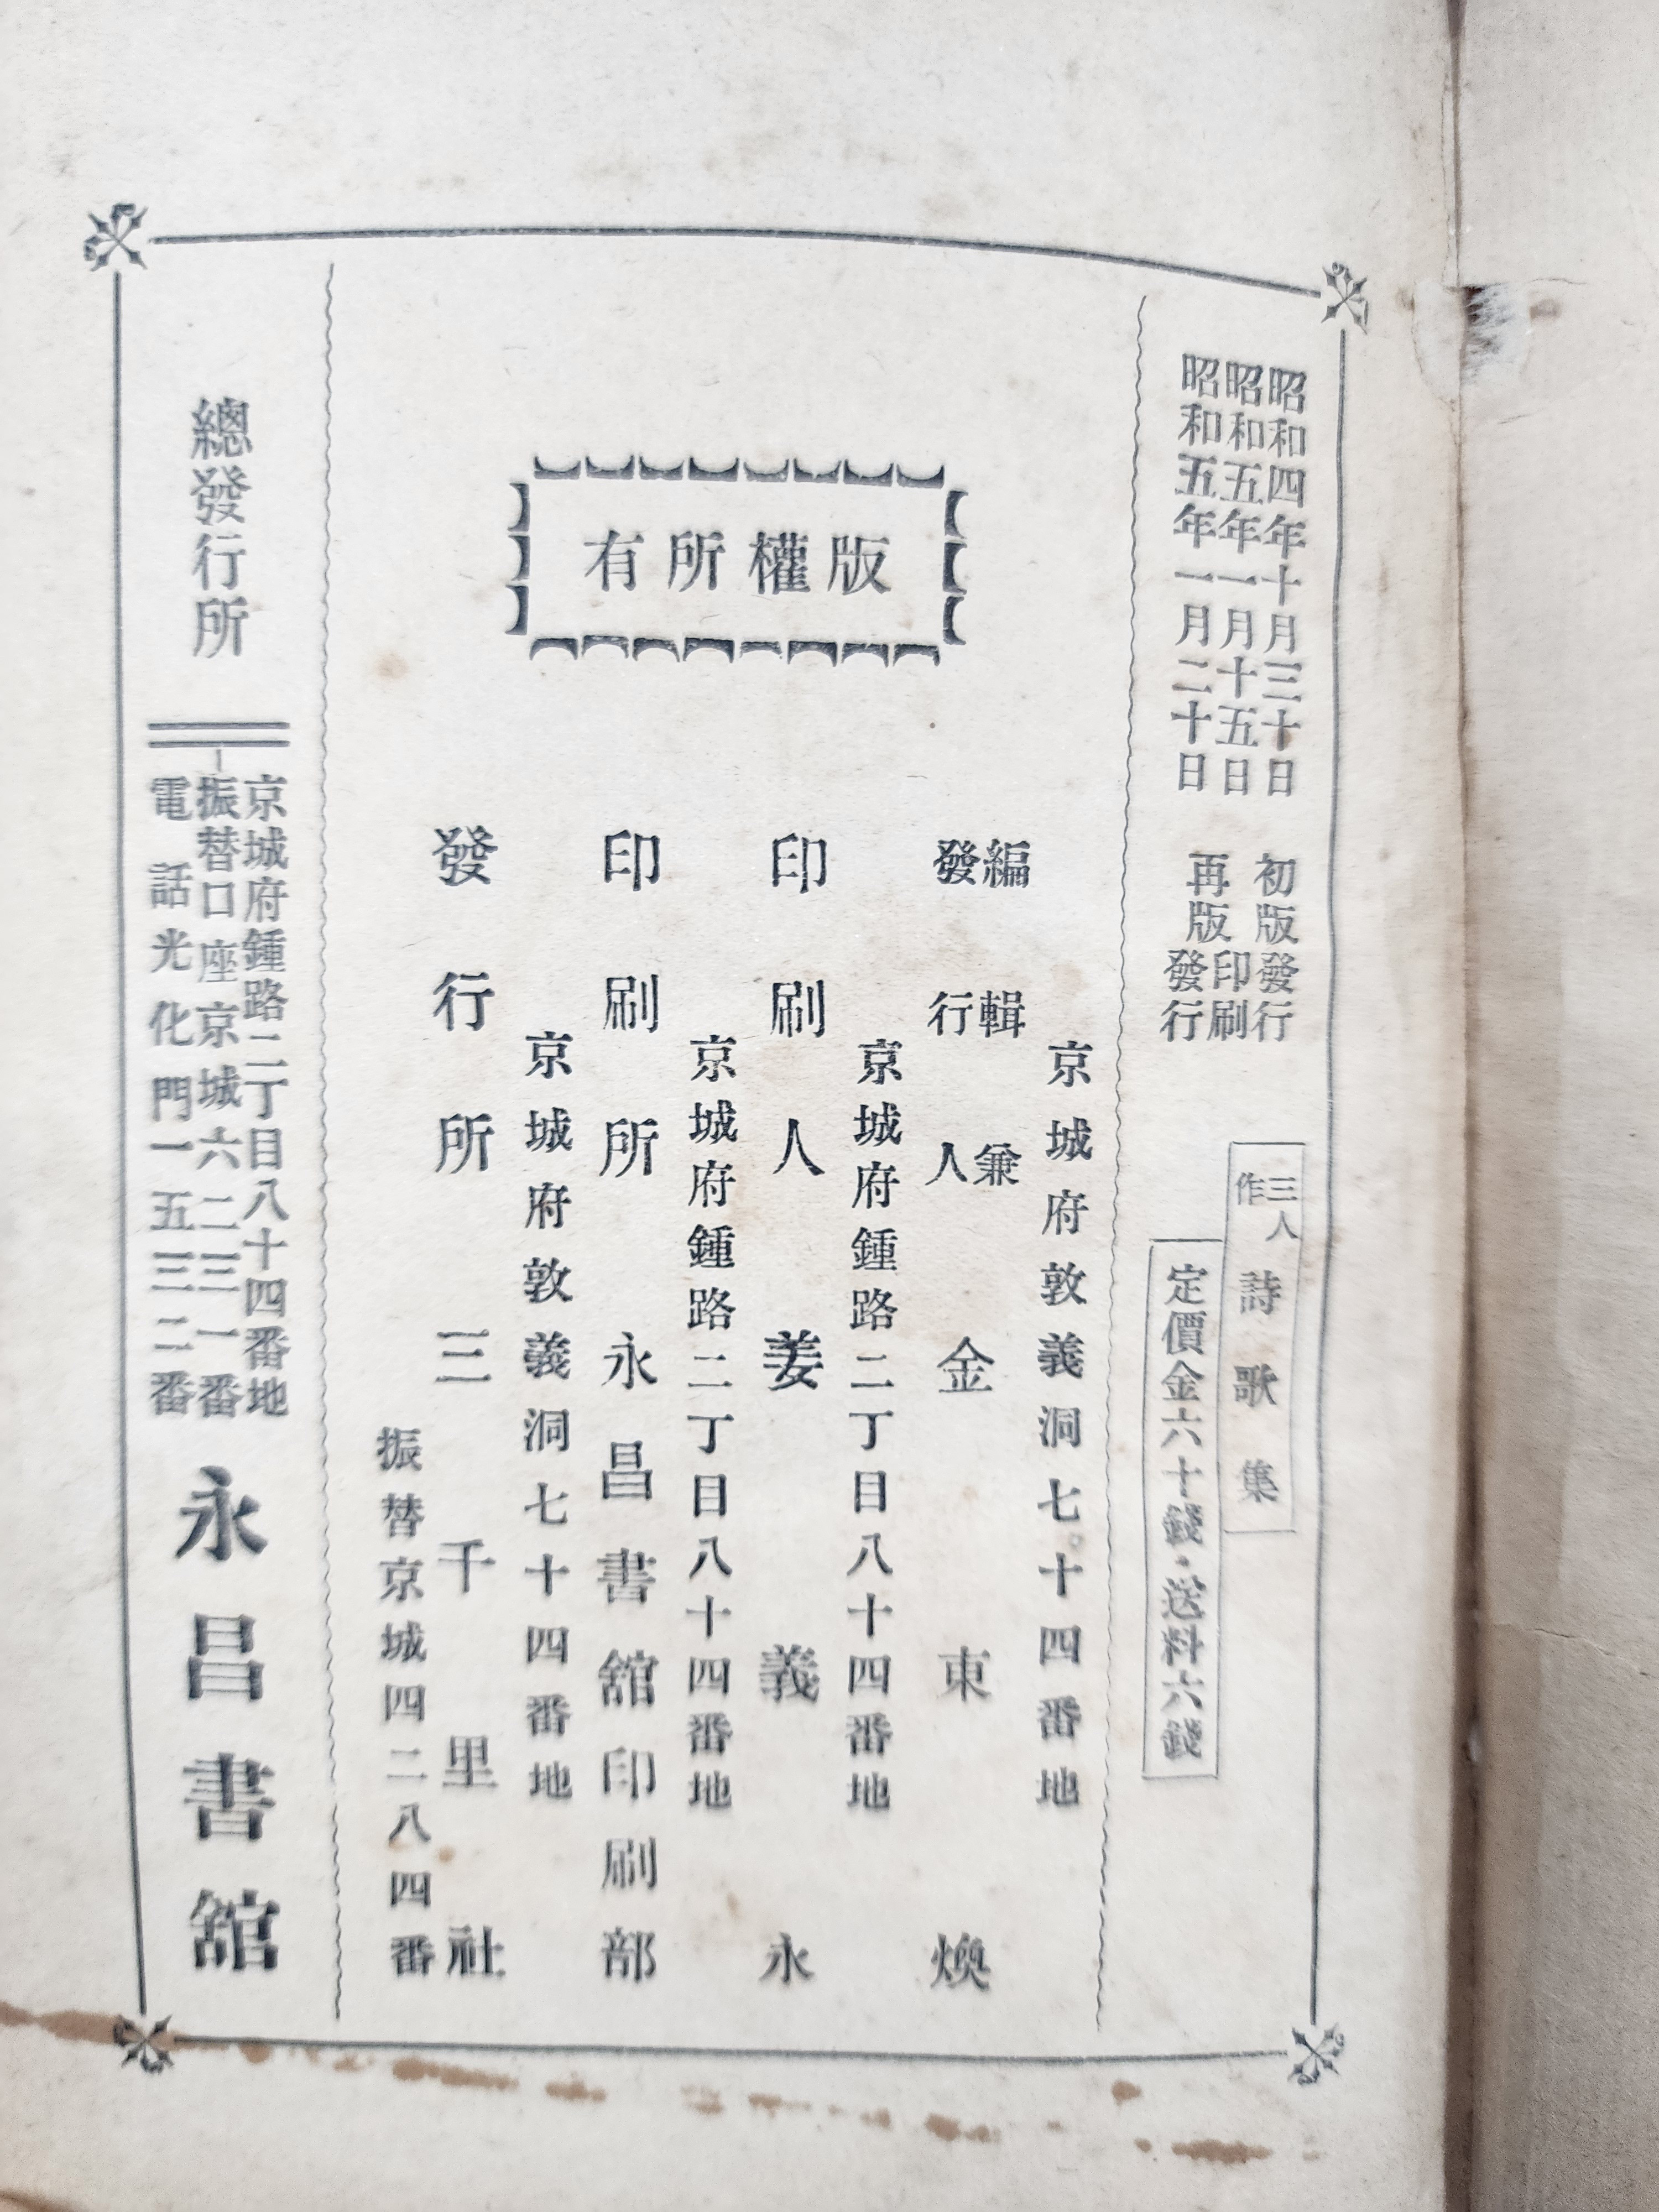 昭和四年十月三十日 初版發行
昭和五年一月十五日 再版印刷
昭和五年一月二十日 再版發行
三人作 詩歌集
定價金六十錢・送料六錢
版權所有
京城府敦義洞七十四番地
編輯兼發行人 金東煥
京城府鍾路二丁目八十四番地
印刷人 姜義永
京城府鍾路二丁目八十四番地
印刷所 永昌書舘印刷部
京城府敦義洞七十四番地
發行所 三千里社
振替京城四二八四番
總發行所
京城府鍾路二丁目八十四番地
振替口座京城六二三一番
電話光化門一五三二番
永昌書舘